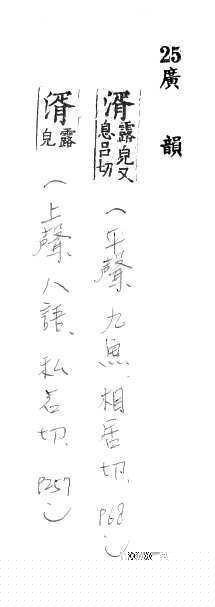 25廣韻
湑露皃又息呂切
(平聲、九魚、相居切、P68)
湑露皃
(上聲、八語、私呂切、P257)